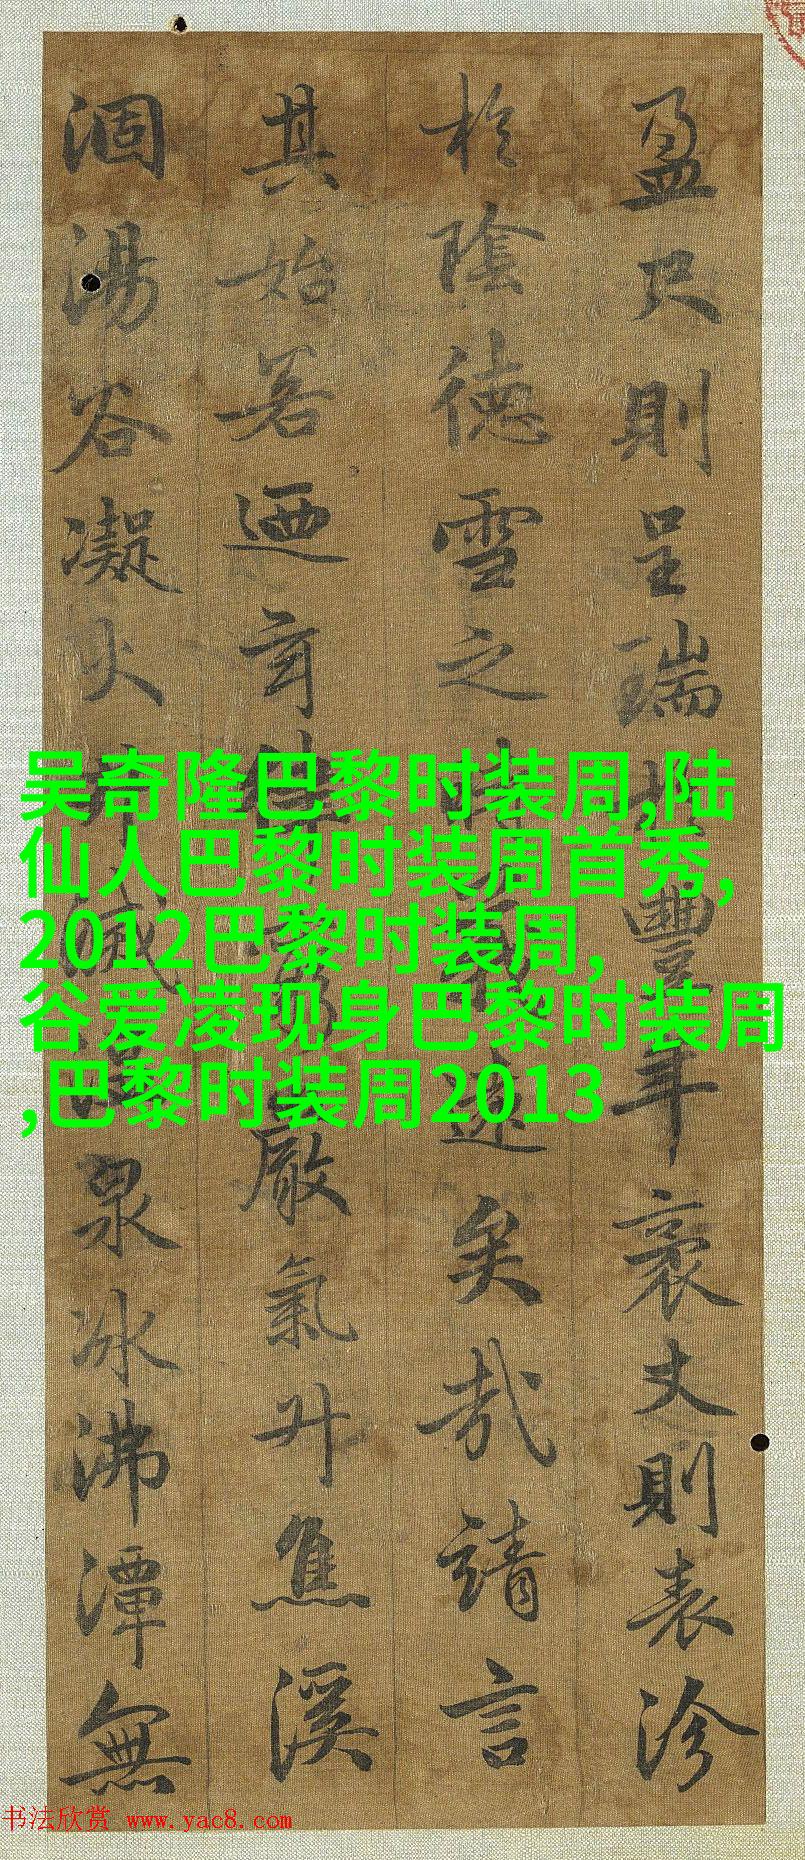 盈尺則呈瑞於豐年袤丈則表沴
於陰德雪之時義遠矣哉請言
其始若迺玄律窮嚴氣升焦溪
涸湯谷凝火井滅溫泉冰沸潭無
吴奇隆巴黎时装周,陆
仙人巴黎时装周首秀,
2012巴黎时装周,
谷爱凌现身巴黎时装周
,巴黎时装周2013
书法欣赏 www.yac8.com